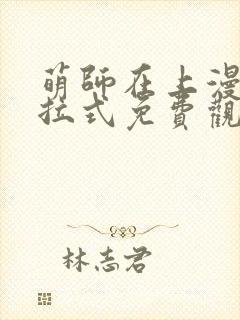 萌師在上漫
拉式免費觀
林志君